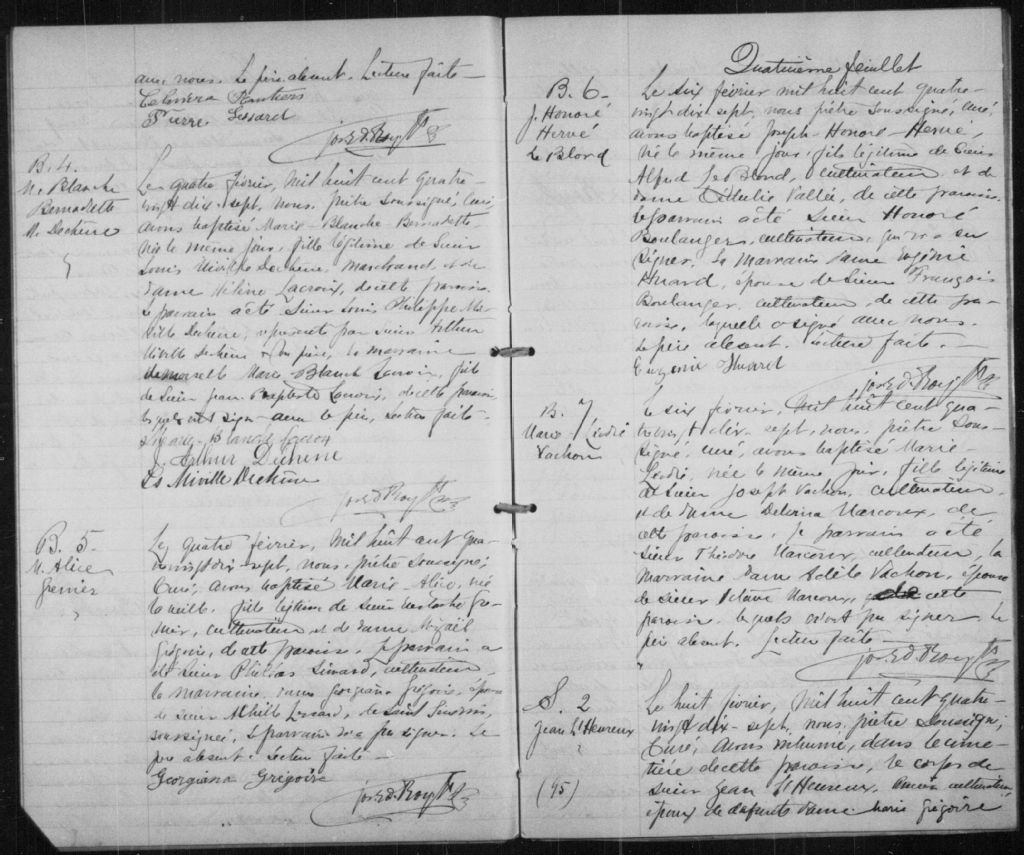 avec nous. Le père absent. Lecture faite
Pierre Lessard
Jos. Ed. Roy Ptre
B. 4.
M. Blanche
Bernadette
M. Dechène
Le quatre février, mil huit cent quatre-
vingt dix-sept, nous, prêtre soussigné, curé
avons baptisé Marie-Blanche-Bernadette
née le même jour, fille légitime de Sieur
Louis Miville Dechène, marchand et de
dame Hélène Lacroix, de cette paroisse
Le parrain a été Sieur Louis Philippe Mi-
ville Dechène, représenté par Sieur Arthur
Miville dechène son père, la marraine
demoiselle Marie Blanche Lacroix, fille
de Sieur Jean Baptiste Lacroix, de cette paroisse,
lesquels ont signé avec le père, Lecture faite-
Blanche Lacroix
Arthur Dechene
Ls Miville Dechêne
Jos. Ed. Roy Ptre
B. 5-
M. Alice
Grenier
Le quatre février, mil huit cent qua-
tre vingt dix-sept, nous, prêtre soussigné,
Curé, avons baptisé Marie-Alice, née
la veille, fille légitime de Sieur Eustache Gre-
nier, cultivateur et de dame
Grégoire, de cette paroisse. Le parrain a
été Sieur Philéas Simard, cultivateur
la marraine, dame Georgiana Grégoire, épouse
de Sieur Achille Lessard,
soussignée, le parrain n'a pu signer. Le
père absent. Lecture faite-
Georgiana Grégoire
Jos. Ed. Roy Ptre
Quatrième feuillet
B. 6-
J. Honoré
Hervé
Le Blond
Le six février mil huit cent quatre-
vingt-dix-sept, nous prêtre soussigné, curé,
avons baptisé Joseph-Honoré-Hervé,
né le même jour, fils légitime de Sieur
Alfred Le Blond, cultivateur et de
dame Vallée, de cette paroisse.
Le parrain a été Sieur Honoré
Boulanger, cultivateur, qui n'a su
signer. La marraine dame Eugénie
Huard, épouse de Sieur François
Boulanger, cultivateur, de cette pa-
roisse, laquelle a signé avec nous.
Le père absent. Lecture faite.-
Eugénie Huard
Jos. Ed. Roy Ptre
B. 7
Marie Lédié
Vachon
Le six février, mil huit cent qua-
tre vingt dix-sept, nous, prêtre sous-
signé, curé, avons baptisé Marie-
née le même jour, fille légitime
de Sieur Joseph Vachon, cultivateur
et de dame Delvina Marcoux, de
cette paroisse, le parrain a été
Sieur Théodore Marcoux, cultivateur, la
Marraine dame Adèle Vachon, épouse
de Sieur Octave Marcoux, de cette
paroisse, lesquels n'ont pu signer le
père absent. Lecture faite-
Jos. Ed. Roy Ptre
S. 2
Jean L'Heureux
(95)
Le huit février, mil huit cent quatre-
vingt dix-sept, nous, prêtre soussigné,
Curé, avons inhumé, dans le cime-
tière de cette paroisse, le corps de
Sieur Jean L'Heureux, ancien cultivateur,
époux de défunte dame Marie Grégoire